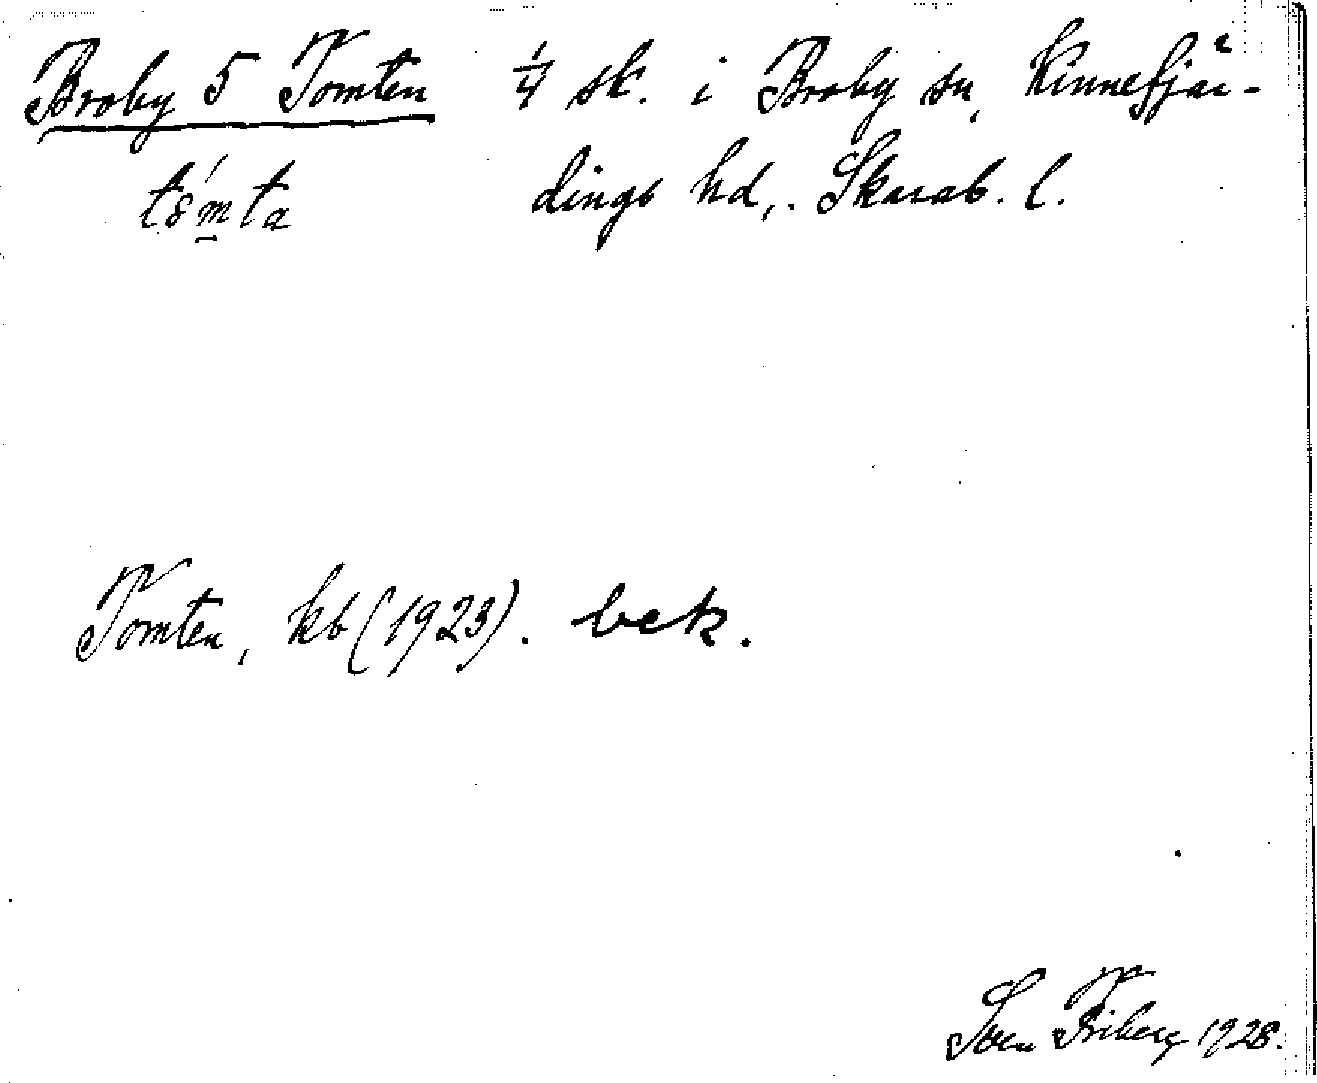 Broby 5 Tomten 1/4 sk. i Broby sn, Kinnefjär-
dings hd, Skarab. l.
Tomten, kb (1923). bek.
Sven Friberg 1928.